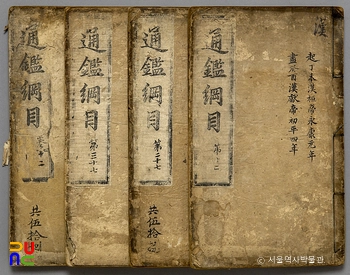 漢
起丁未漢桓帝永康元年
盡癸酉漢獻帝初平四年
通鑑綱目
第十二
通鑑綱目
第二十七
共伍拾
通鑑綱目
第三十七
通鑑綱目
共伍拾
© 서울역사박물관